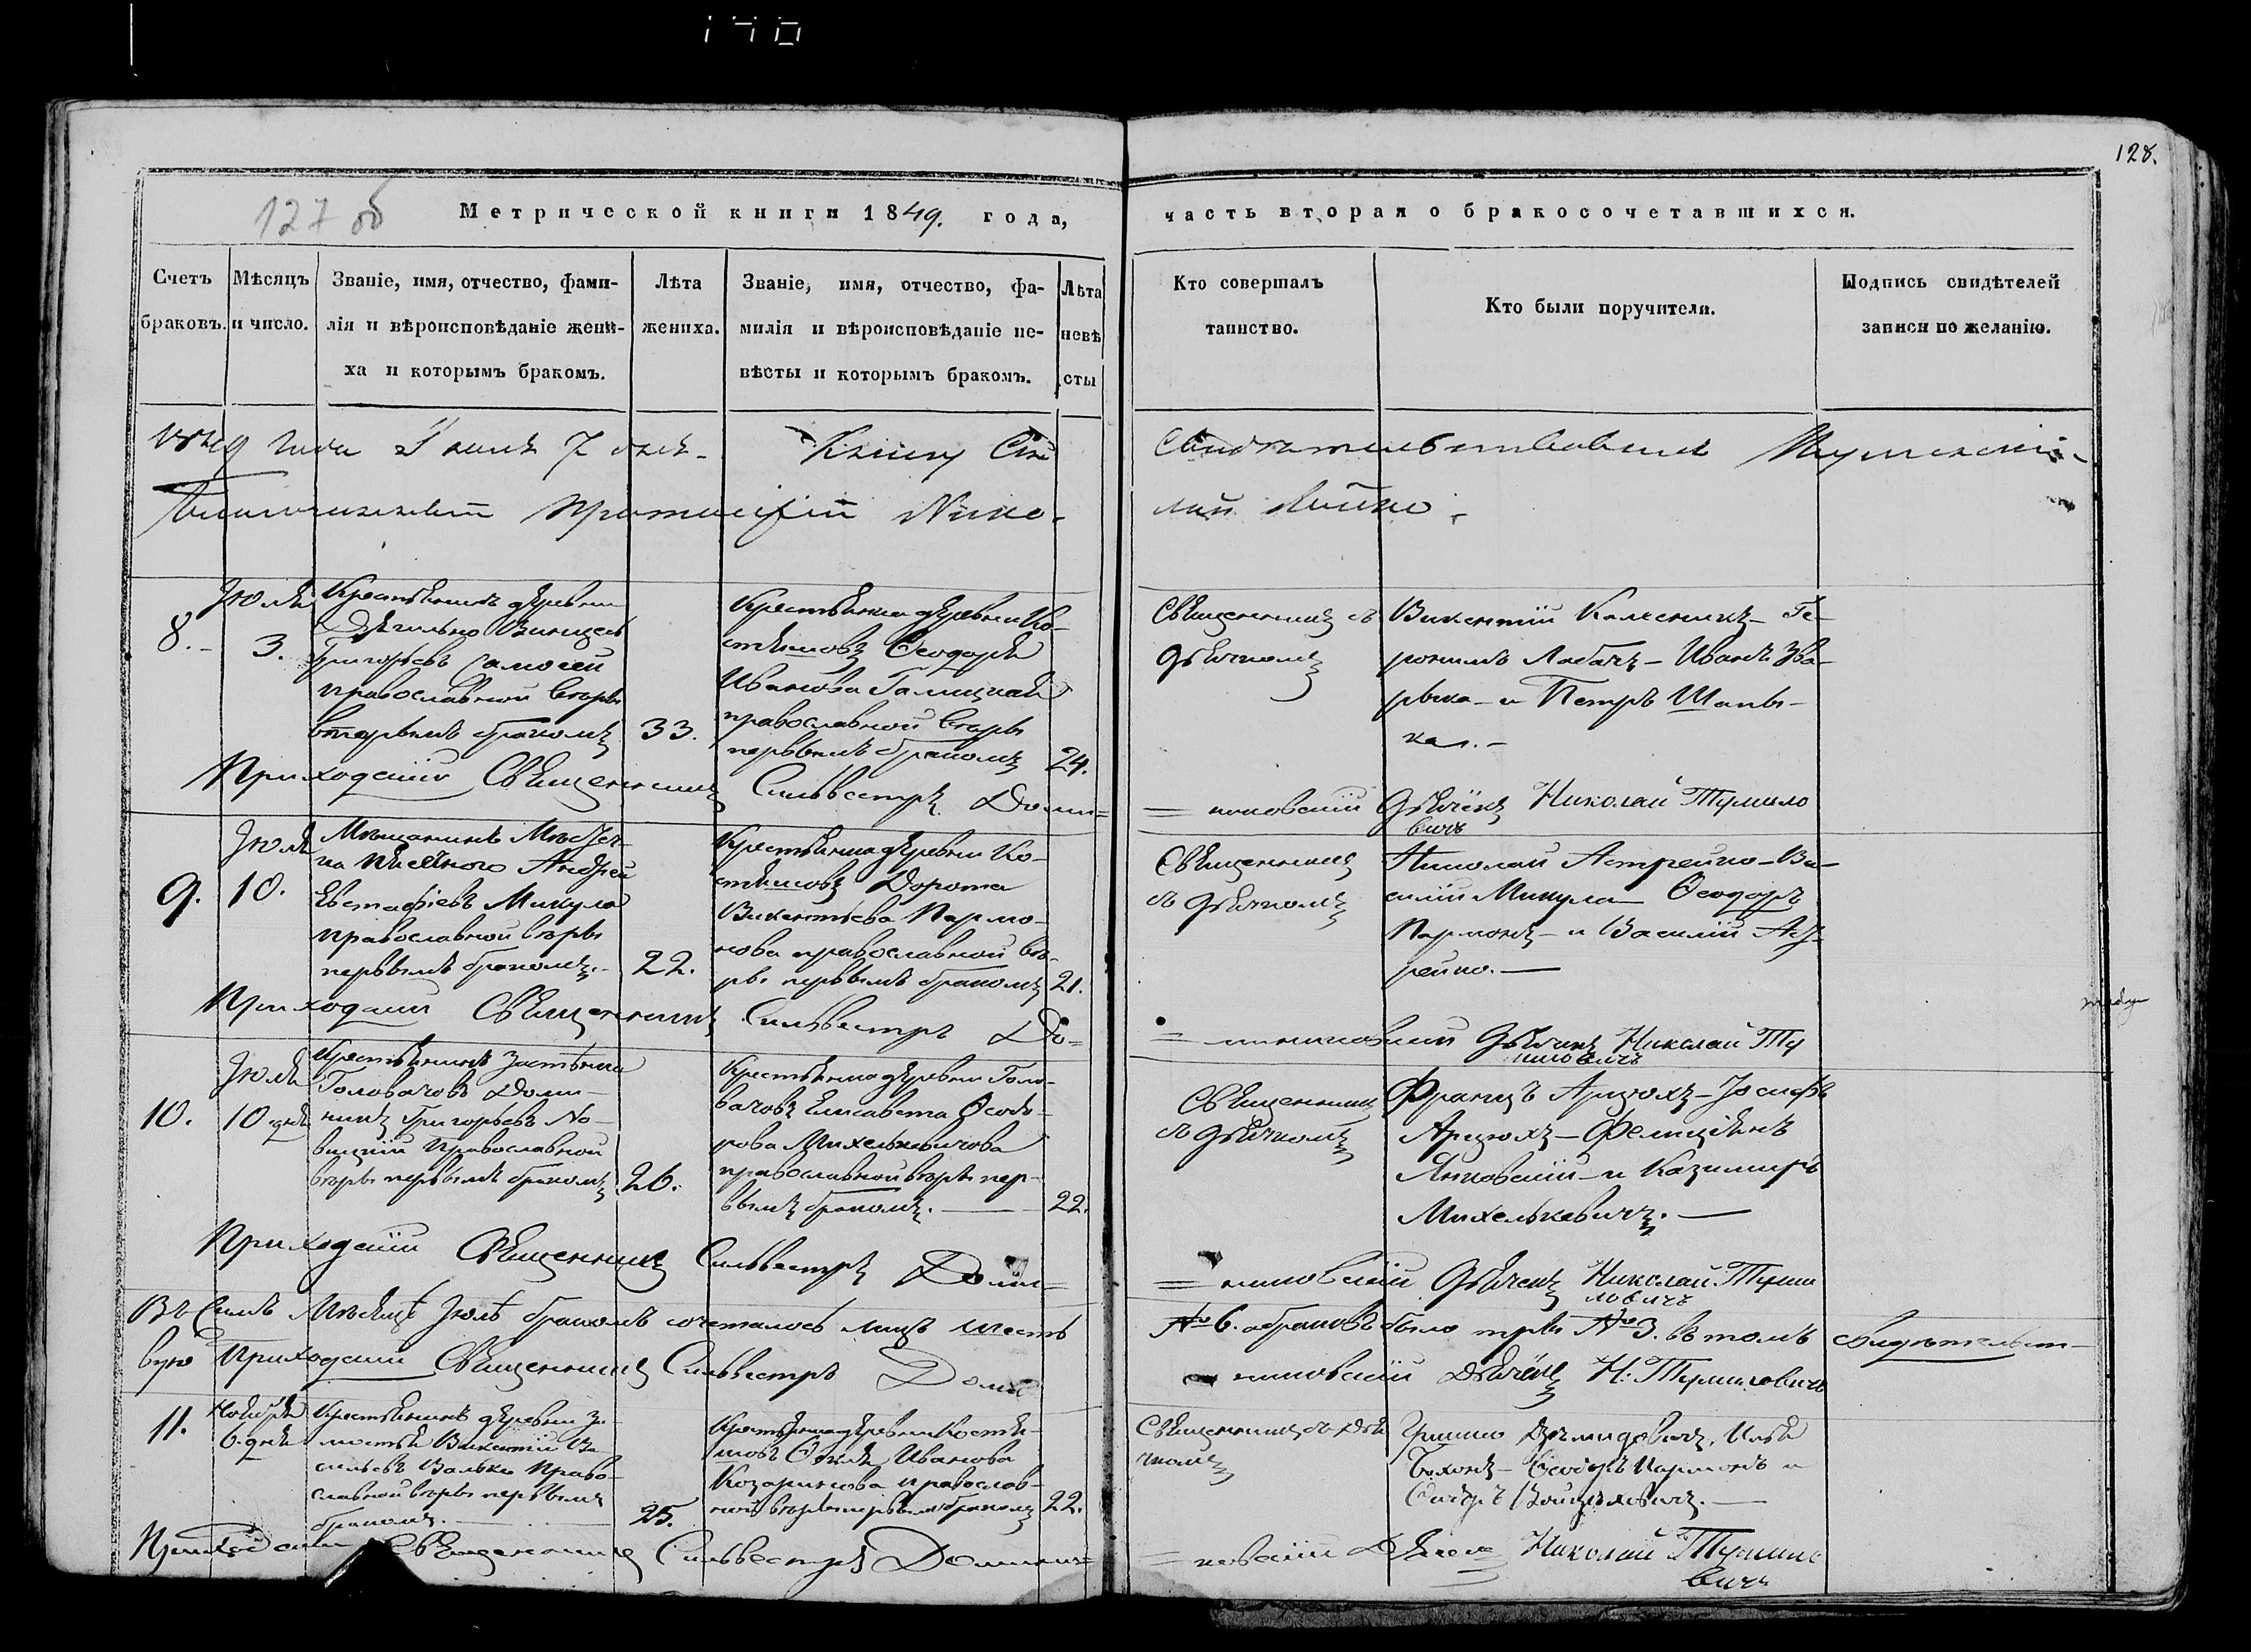 128.
127 об
Метрической книги 1849. года,
часть вторая о бракосочетавшихся.
Счетъ браковъ.
Мѣсяцъ и число.
Званіе, имя, отчество, фами-
лія и вѣроисповѣданіе жени-
ха и которымъ бракомъ.
Лѣта
жениха.
Званіе, имя, отчество, фа-
милія и вѣроисповѣданіе не-
вѣсты и которымъ бракомъ.
Лѣта
невѣ
сты
Кто совершалъ
таинство.
Кто были поручители.
Подпись свидѣтелей
записи по желанію.
1849 года Іюля 7 дня. Книгу Сію
свидѣтельствовалъ
Благочинный Протоіерей Нико-
лай
8.
Іюля
3.
Крестьянинъ деревни
Григорьевъ Самосей
православной вѣры
вторымъ бракомъ
33.
Крестьянка деревни Ко-
стѣшовъ Ѳеодора
Иванова Галицкая
православной вѣры
первымъ бракомъ
24.
Священникъ съ
дьячкомъ
Викентій Колесникъ – Ге-
ронимъ Лабачъ – Иванъ Зва-
рыка – и Петръ Шапы-
ка.
Приходскій Священникъ Сильвестръ Доми=
=никовскій Дьячекъ Николай Тумило
вичъ
9.
Іюля
10.
Мѣщанинъ Мѣстеч-
ка Андрей
Евстафіевъ Микула
православной вѣры
первымъ бракомъ.
22.
Крестьянка деревни Ко-
стѣшовъ Дорота
Викентьева Пармо-
нова православной вѣ-
ры первымъ бракомъ
21.
Священникъ
съ дьячкомъ
Николай Астрейко – Ва-
силій Микула – Ѳеодоръ
Пармонъ – и Василій Аст-
рейко.
Приходскій Священникъ Сильвестръ До=
=миниковскій Дьячекъ Николай Ту
миловичъ
10.
Іюля
10 дня
Крестьянинъ Застѣнка
Головачовъ Доми-
никъ Григорьевъ Но-
вицкій Православной
вѣры первымъ бракомъ
26.
Крестьянка деревни Голо-
вачовъ Елисавета Ѳеодо-
рова Михелькевичова
православной вѣры пер-
вымъ бракомъ.
22.
Священникъ
съ дьячкомъ
Францъ Арцюхъ – Іосифъ
Арцюхъ – Фелиціянъ
Янковскій – и Казимиръ
Михелькевичъ.
Приходскій Священникъ Сильвестръ Доми=
=никовскій Дьячекъ Николай Туми
ловичъ
Въ Семъ Мѣсяцѣ Іюлѣ бракомъ сочеталось лицъ шесть
№ 6. а браковъ было три № 3. въ томъ свидѣтельст-
вую Приходскій Священникъ Сильвестръ Доми
никовскій Дьячекъ Н: Тумиловичъ
11.
Ноября
6. дня
Крестьянинъ деревни За-
мостья Викентій Ва-
сильевъ Валько Право-
славной вѣры первымъ
бракомъ.
25.
Крестьянка деревни Костѣ-
шовъ Ѳекла Иванова
Козаринова православ-
ной вѣры первымъ бракомъ
22.
Священникъ съ дья
чкомъ
Демидовичъ, Илья
Ѳеодоръ Пармонъ и
Войцеховичъ.
Приходскій Священникъ Сильвестръ Домини=
=ковскій Дьячекъ Николай Тумило
вичъ